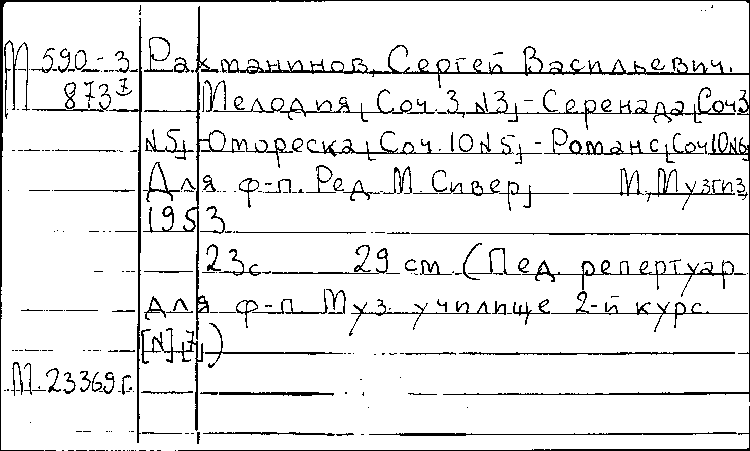 М 590-3 Рахманинов, Сергей Васильевич.
873⁷ Мелодия [Соч. 3, N3] - Серенада [Соч 3
N5] - Юмореска [Соч. 10 N5] - Романс [Соч 10 N6]
Для ф-п. Ред М. Сивер] М, Музгиз,
1953
23с 29 см (Пед. репертуар
для ф-п. Муз. училище 2-й курс.
[N] [7])
М. 23369 г.